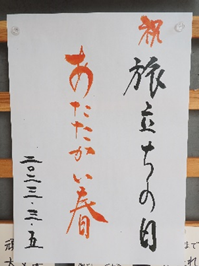 祝
旅立ちの日
あたたかい春
二〇二三・三・五